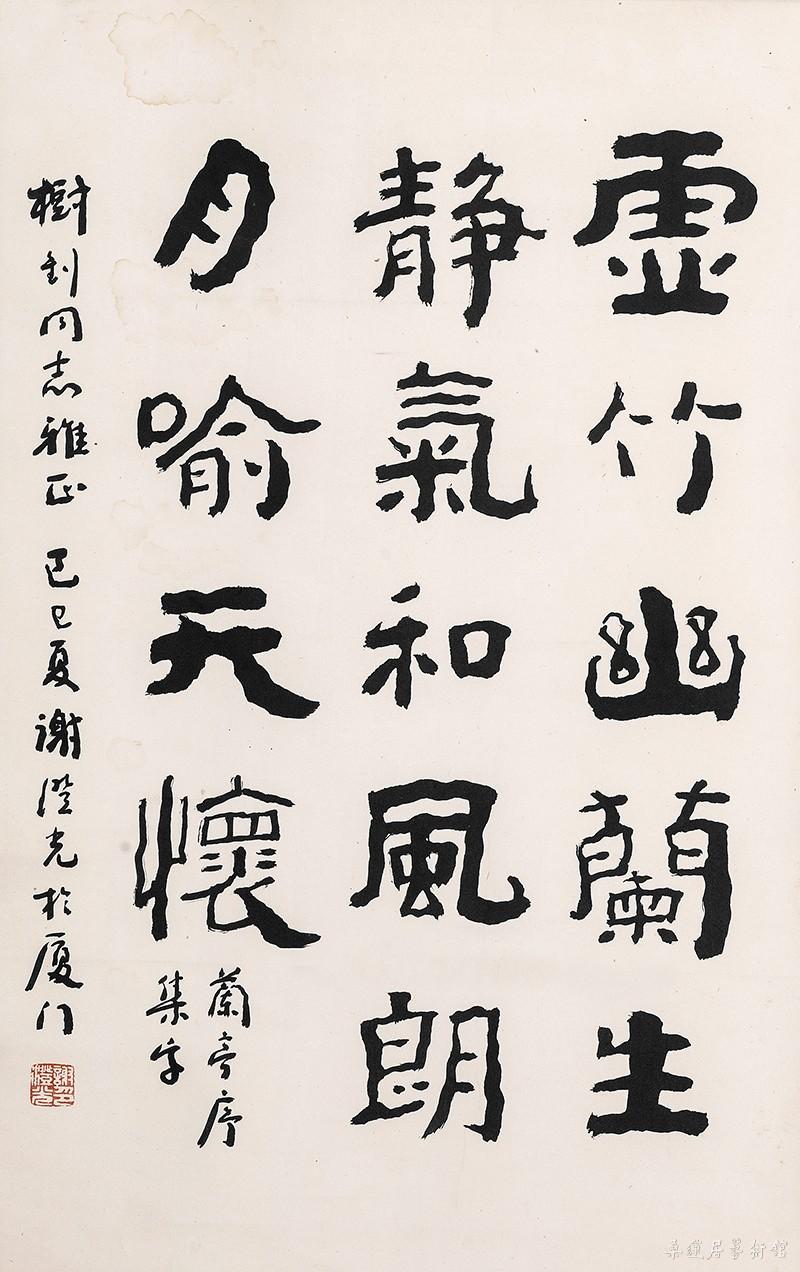 虛竹幽蘭生
静氣和風朗
月喻天懷
蘭亭序
集字
樹同志雅正 己巳夏 謝澄光於厦门
謝澄光印
桑蓮居藝術館